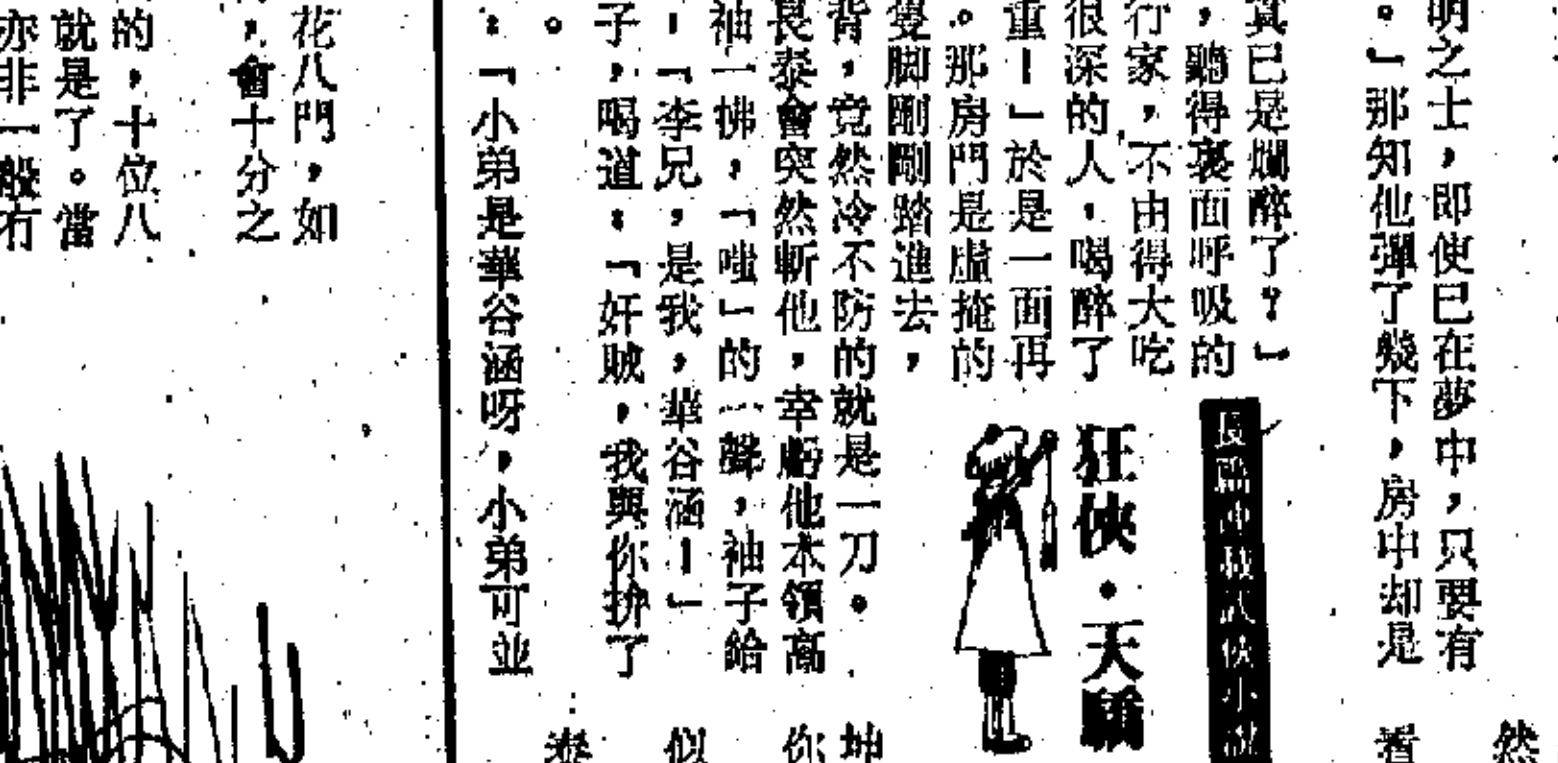 明之士，即使已在夢中，只要有
。」那知他彈了幾下，房中却是
真已是爛醉了？」
，聽得裏面呼吸的
行家，不由得大吃
很深的人，喝醉了
重！」於是一面再
。那房門是虛掩的
雙脚剛剛踏進去，
背，竟然冷不防的就是一刀。
長泰會突然斬他，幸虧他本領高
袖一拂，「嗤」的一聲，袖子給
！「李兄，是我，華谷涵！」
子，喝道：「奸賊，我與你拚了
。
：「小弟是華谷涵呀，小弟可並
狂俠・天驕
然
看
坤
你
似
泰
花八門，如
，會十分之
的，十位八
就是了。當
亦非一般有